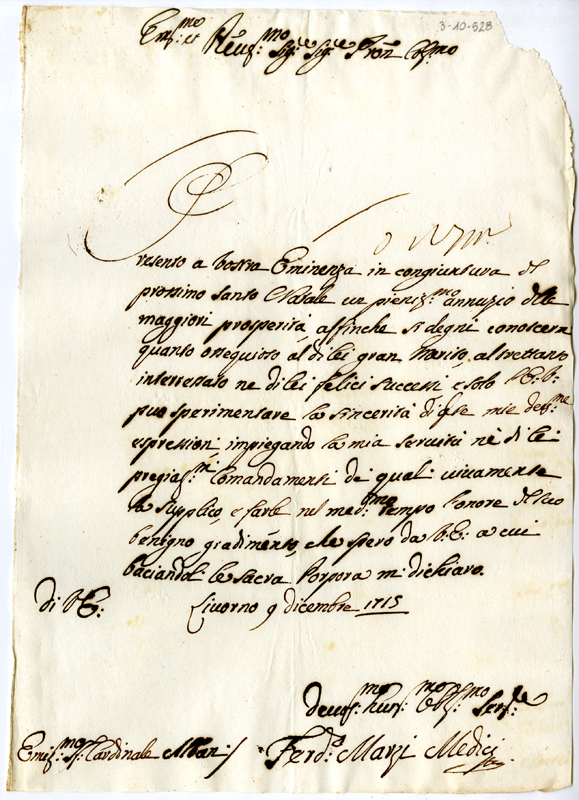 3-10-528
Em:mo et Reu:mo Sig:re Sig:re Pron Col:mo
Presento a Vostra Eminenza in congiuntura del
prossimo santo Natale un pieniss:mo annuzio delle
maggiori prosperità, affinche si degni conoscere
quanto ossequioso al di lei gran Merito, altrettanto
interessato ne di lei felici successi, e solo V:E:
può sperimentare la sincerità di q:ste mie deu:me
espressioni impiegando la mia seruitù nè di lei
pregia:mi Comandamenti de quali uiuamente
la supplico, e farle nel med:mo tempo honore del suo
benigno gradimento, che spero da V:E: a cui
baciandole le sacra Porpora mi dichiaro.
di V:E: Liuorno 9 dicembre 1715
Deuot:mo hum:mo Obl:mo Ser:re
Emin:mo S: Cardinale Albani / Ferd:o Marzi Medici